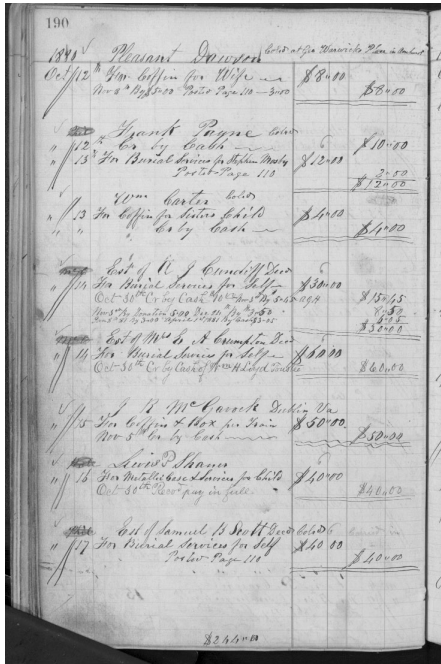 190
1891 Pleasant Dawson Cold at Geo Warwicks Place in Amherst
Oct 12th For Coffin for Wife $8"00
Nov 8th By $5"00 Posted Page 110 — 3"00 $8"00
Frank Payne Cold
" 12th Cr by Cash $10"00
" 13th For Burial Services for Stephen Mosby $12"00
Posted Page 110 2"00
$12"00
Wm Carter Cold
" 13 For Coffin for Sisters Child $4"00
" " Cr by Cash $4"00
Est of R J Cundiff Decd
" 14 For Burial Services for Self $30"00
Oct 30th Cr by Cash $15"45
$30"00
Est of Mrs E A Crumpton Decd
" 14 For Burial Services for Self $60"00
Oct 30th Cr by Cash of Wm H Loyd Trustee $60"00
J R McGavock Dublin Va
" 15 For Coffin & Box per Train $50"00
Nov 5th Cr by Cash $50"00
Lewis P Shaner
" 16 For Metallic Case & Services for Child $40"00
Oct 30th Recd pay in full $40"00
Est of Samuel B Scott Decd Cold
" 17 For Burial Services for Self $40"00
Posted Page 110 $40"00
$244"00